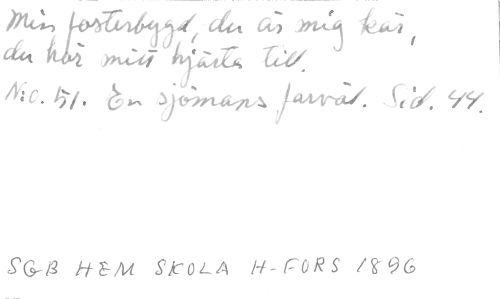 Min fosterbygd, du är mig kär,
du hör mitt hjärta till.
N:o. 51. En sjömans farväl. Sid. 44.
SGB HEM SKOLA H-FORS 1896